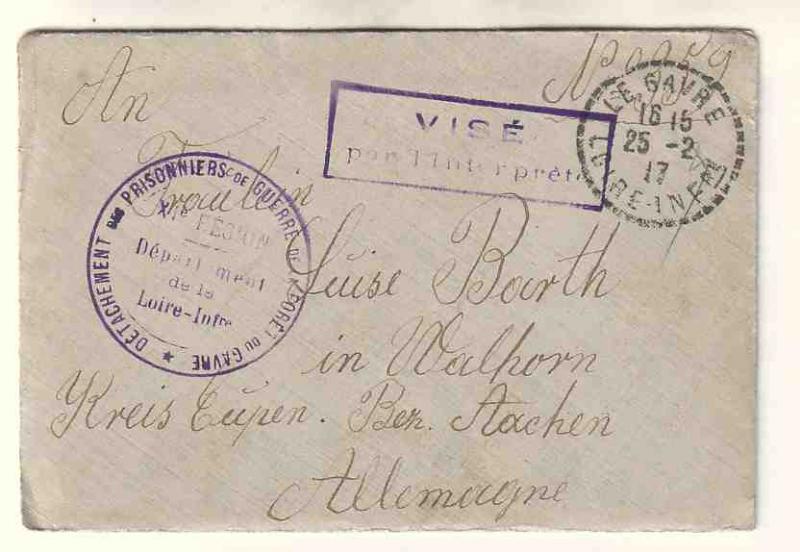 An
Fräulein
Luise Barth
in Walhorn
Kreis Eupen. Bez. Aachen
Allemagne
VISÉ
par l'Interprète
LE GAVRE
16 15
25 -2
17
LOIRE-INFRE
DÉTACHEMENT DES PRISONNIERS DE GUERRE DE LA FORÊT DU GAVRE ★
XIe RÉGION
Département
de la
Loire-Infre